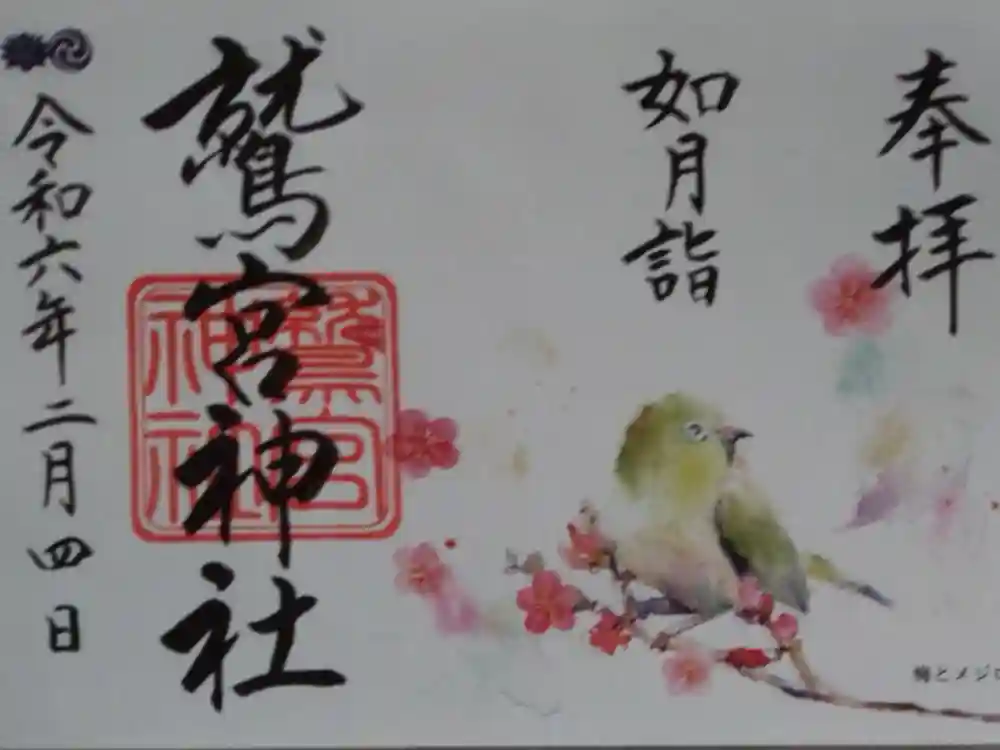 奉拝
如月詣
鷲宮神社
鷲宮
神社
令和六年二月四日
梅とメジロ